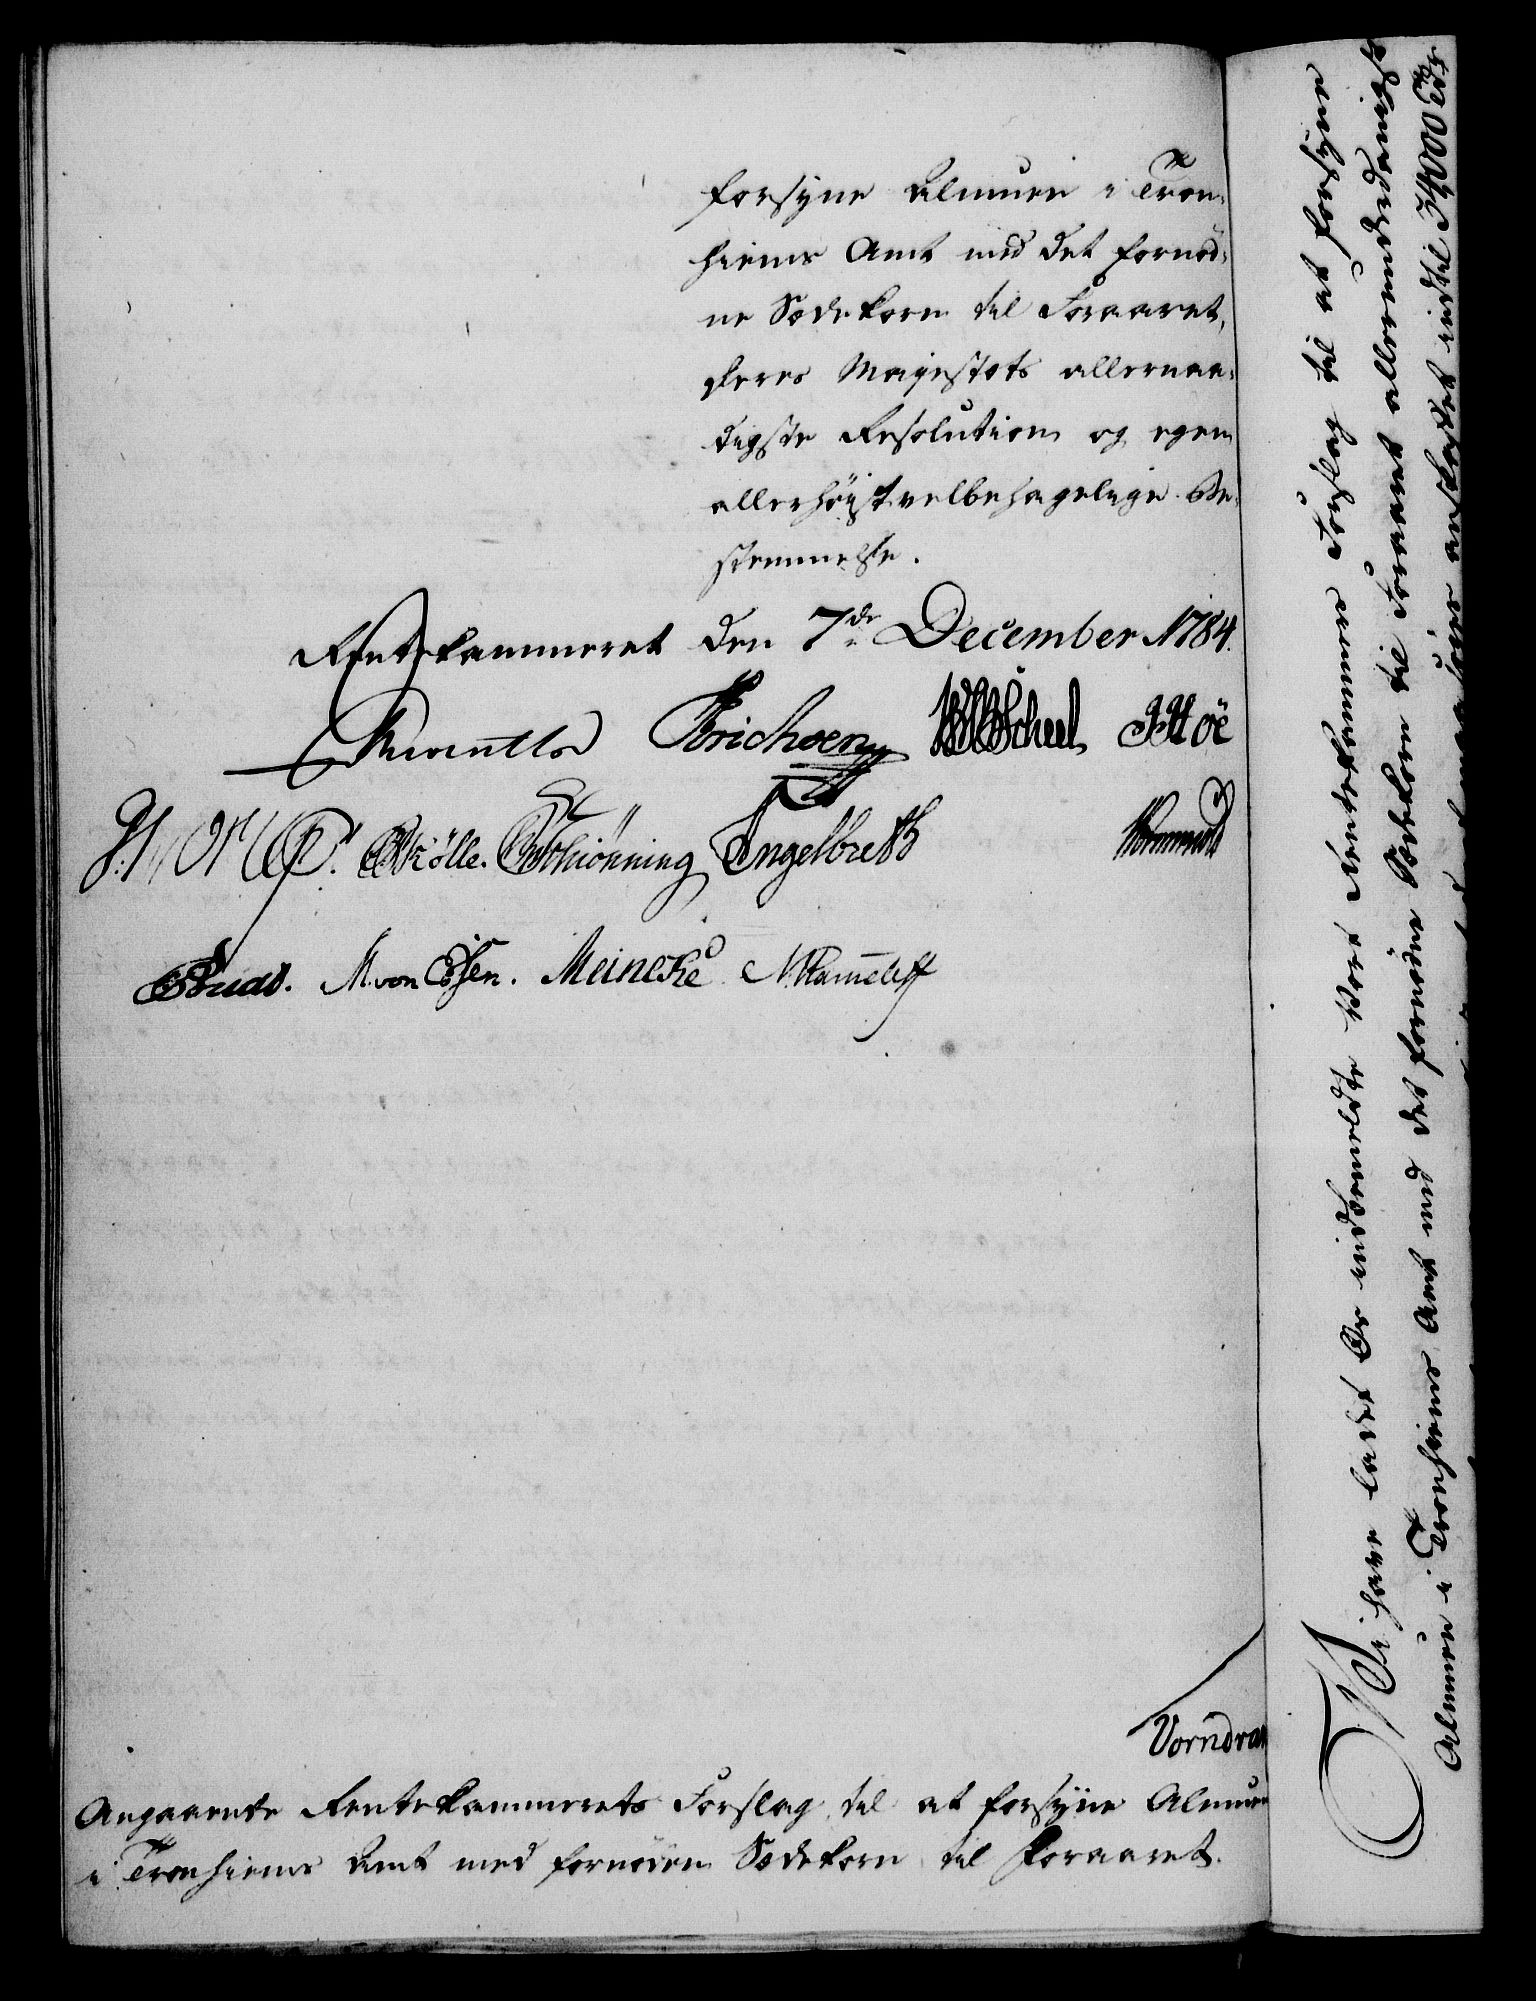 forsyne Almuen i Tron-
hiems Amt med det fornød-
ne Sædekorn til Foraaret,
Deres Majestæts allernaa-
digste Resolution og egen
allerhöystvelbehagelige Be-
stemmelse.
Rentekammeret den 7de December 1784.
Erichsen WScheel JHoë
Schiønning Engelbreth
M. von Essen. Meincke
Vorndran
Angaaende Rentekammerets Forslag til at forsyne Almuen
i Tronhiems Amt med fornöden Sædekorn til Foraaret.
Vi have ladet Os indbemeldte Vort Rentekammers Forslag til at forsyne
Almuen i Tronhiems Amt med det fornødne Sædekorn til Foraaret allerunderdanigst